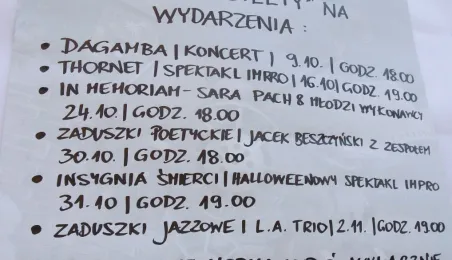 NA
WYDARZENIA :
• DAGAMBA | KONCERT | 9.10. | GODZ. 18.00
• THORNET | SPEKTAKL IMPRO | 16.10 | GODZ. 19.00
• IN MEMORIAM - SARA PACH & MŁODZI WYKONAWCY
24.10. | GODZ. 18.00
• ZADUSZKI POETYCKIE | JACEK BESZCZYŃSKI Z ZESPOŁEM
30.10. | GODZ. 18.00
• INSYGNIA ŚMIERCI | HALLOWEENOWY SPEKTAKL IMPRO
31.10 | GODZ. 19.00
• ZADUSZKI JAZZOWE | L.A. TRIO | 2.11. | GODZ. 19.00